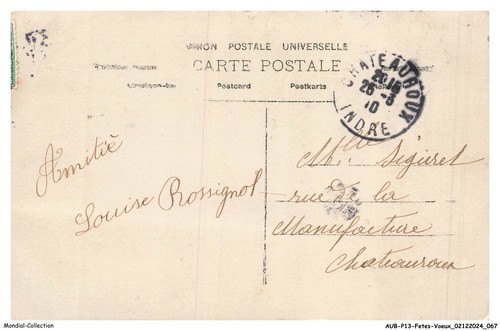 UNION POSTALE UNIVERSELLE
CARTE POSTALE
Postcard
Postkarte
CHATEAUROUX
26-3
10
INDRE
Amitié
Louise Rossignol
Mlle Siguret
rue de la
Manufacture
Chateauroux
Mondial-Collection
AUB-P13-Fetes-Voeux_02122024_067